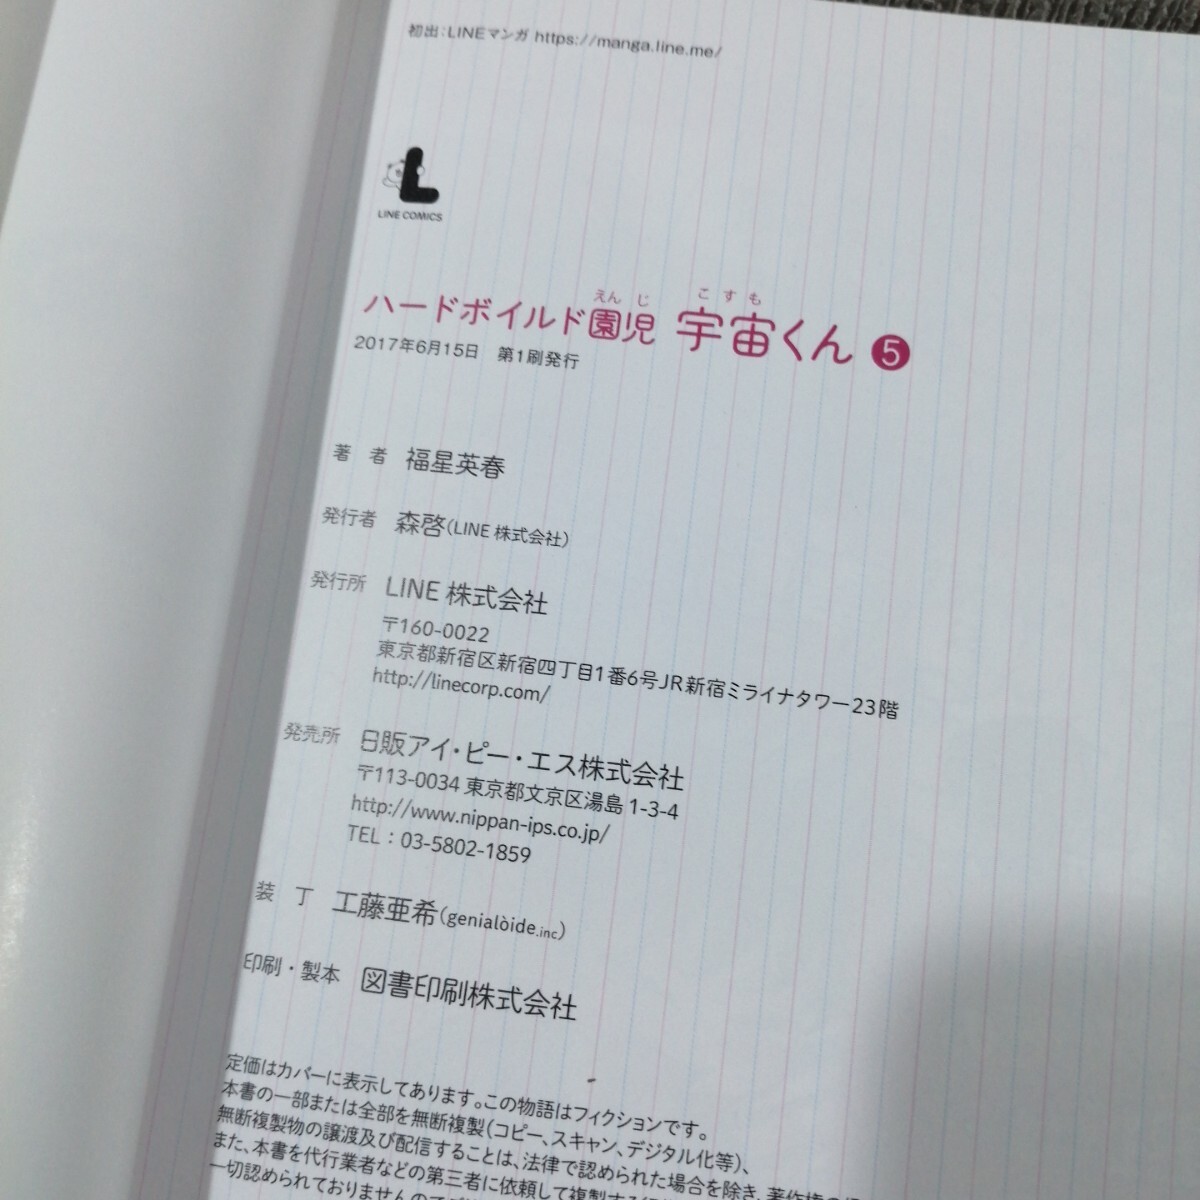 初出:LINEマンガ https://manga.line.me/
L
LINE COMICS
えんじ こすも
ハードボイルド園児 宇宙くん 5
2017年6月15日 第1刷発行
著 者 福星英春
発行者 森啓(LINE 株式会社)
発行所 LINE 株式会社
〒160-0022
東京都新宿区新宿四丁目1番6号JR新宿ミライナタワー23階
http://linecorp.com/
発売所 日販アイ・ピー・エス株式会社
〒113-0034 東京都文京区湯島 1-3-4
http://www.nippan-ips.co.jp/
TEL : 03-5802-1859
装 丁 工藤亜希(genialòide.inc)
印刷・製本 図書印刷株式会社
定価はカバーに表示してあります。この物語はフィクションです。
本書の一部または全部を無断複製(コピー、スキャン、デジタル化等)、
無断複製物の譲渡及び配信することは、法律で認められた場合を除き、著作権の
また、本書を代行業者などの第三者に依頼して複製する
一切認められておりませんので